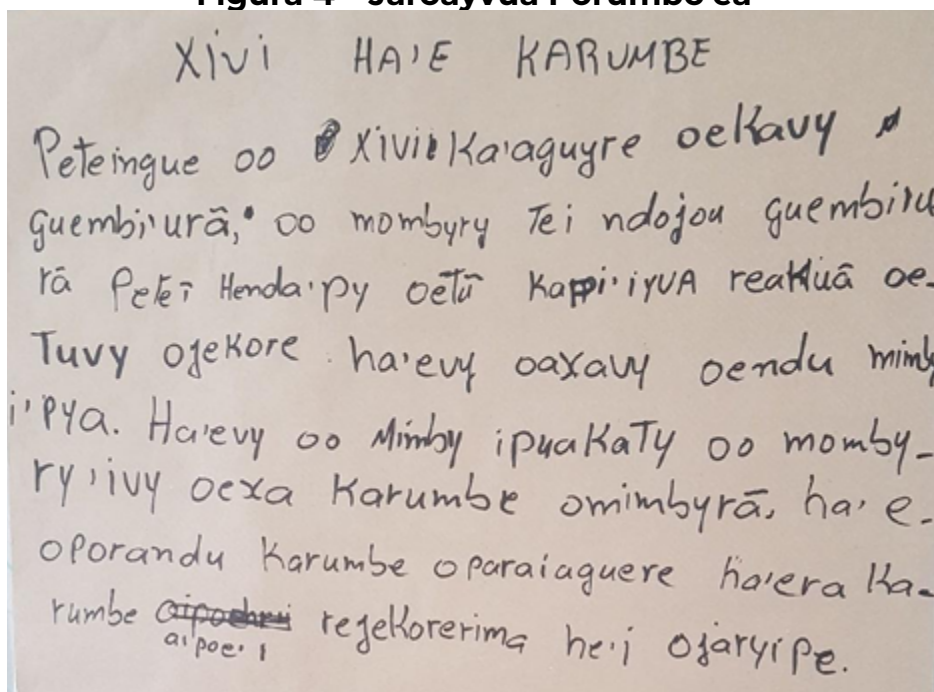 XIVI HA'E KARUMBE
Peteingue oo xivi Ka'aguyre oeKavy
guembi'urã, oo mombyry Tei ndojou guembi'u
rã Peteĩ Henda'py oetũ Kapi'iyVA reaKuã oe-
Tuvy ojeKore ha'evy oaxavy oendu mimby
i'pya. Ha'evy oo Mimby ipuaKaTy oo momby-
ry'ivy oexa Karumbe omimbyrã, ha'e-
oporandu Karumbe oparaiaguere ha'era Ka-
rumbe aipoe'i rejeKorerima he'i ojaryipe.